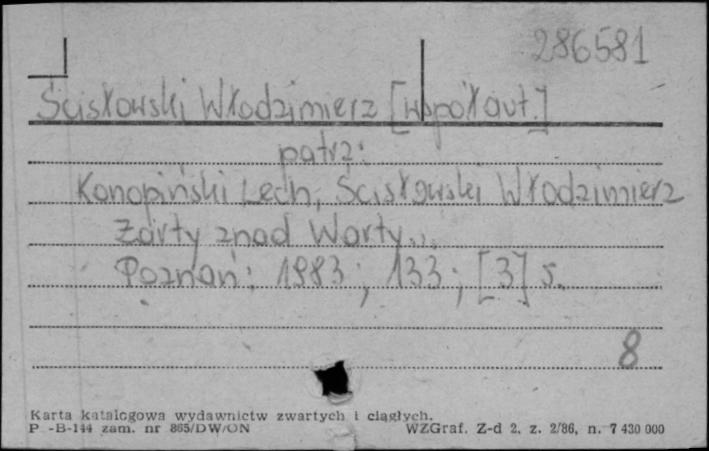 286581
Ścisłowski Włodzimierz [współaut.]
patrz:
Konopiński Lech, Ścisłowski Włodzimierz
Żarty znad Warty...
Poznań: 1983; 133; [3] s.
8
Karta katalogowa wydawnictw zwartych i ciągłych.
P -B-144 zam. nr 865/DW/ON WZGraf. Z-d 2. z. 2/86, n. 7 430 000